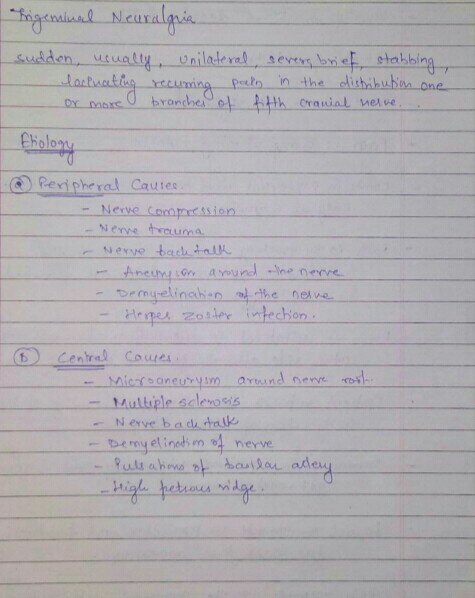 Trigeminal Neuralgia
sudden, usually, unilateral, severe, brief, stabbing,
lacinating recurring pain in the distribution one
or more branches of fifth cranial nerve.
Etiology
a) Peripheral Causes.
- Nerve compression
- Nerve trauma
- Nerve back talk
- Aneurysm around the nerve
- Demyelination of the nerve
- Herpes zoster infection.
b) Central Causes.
- Microaneurysm around nerve root.
- Multiple sclerosis
- Nerve back talk
- Demyelination of nerve
- Pulsations of basilar artery
- High petrous ridge.